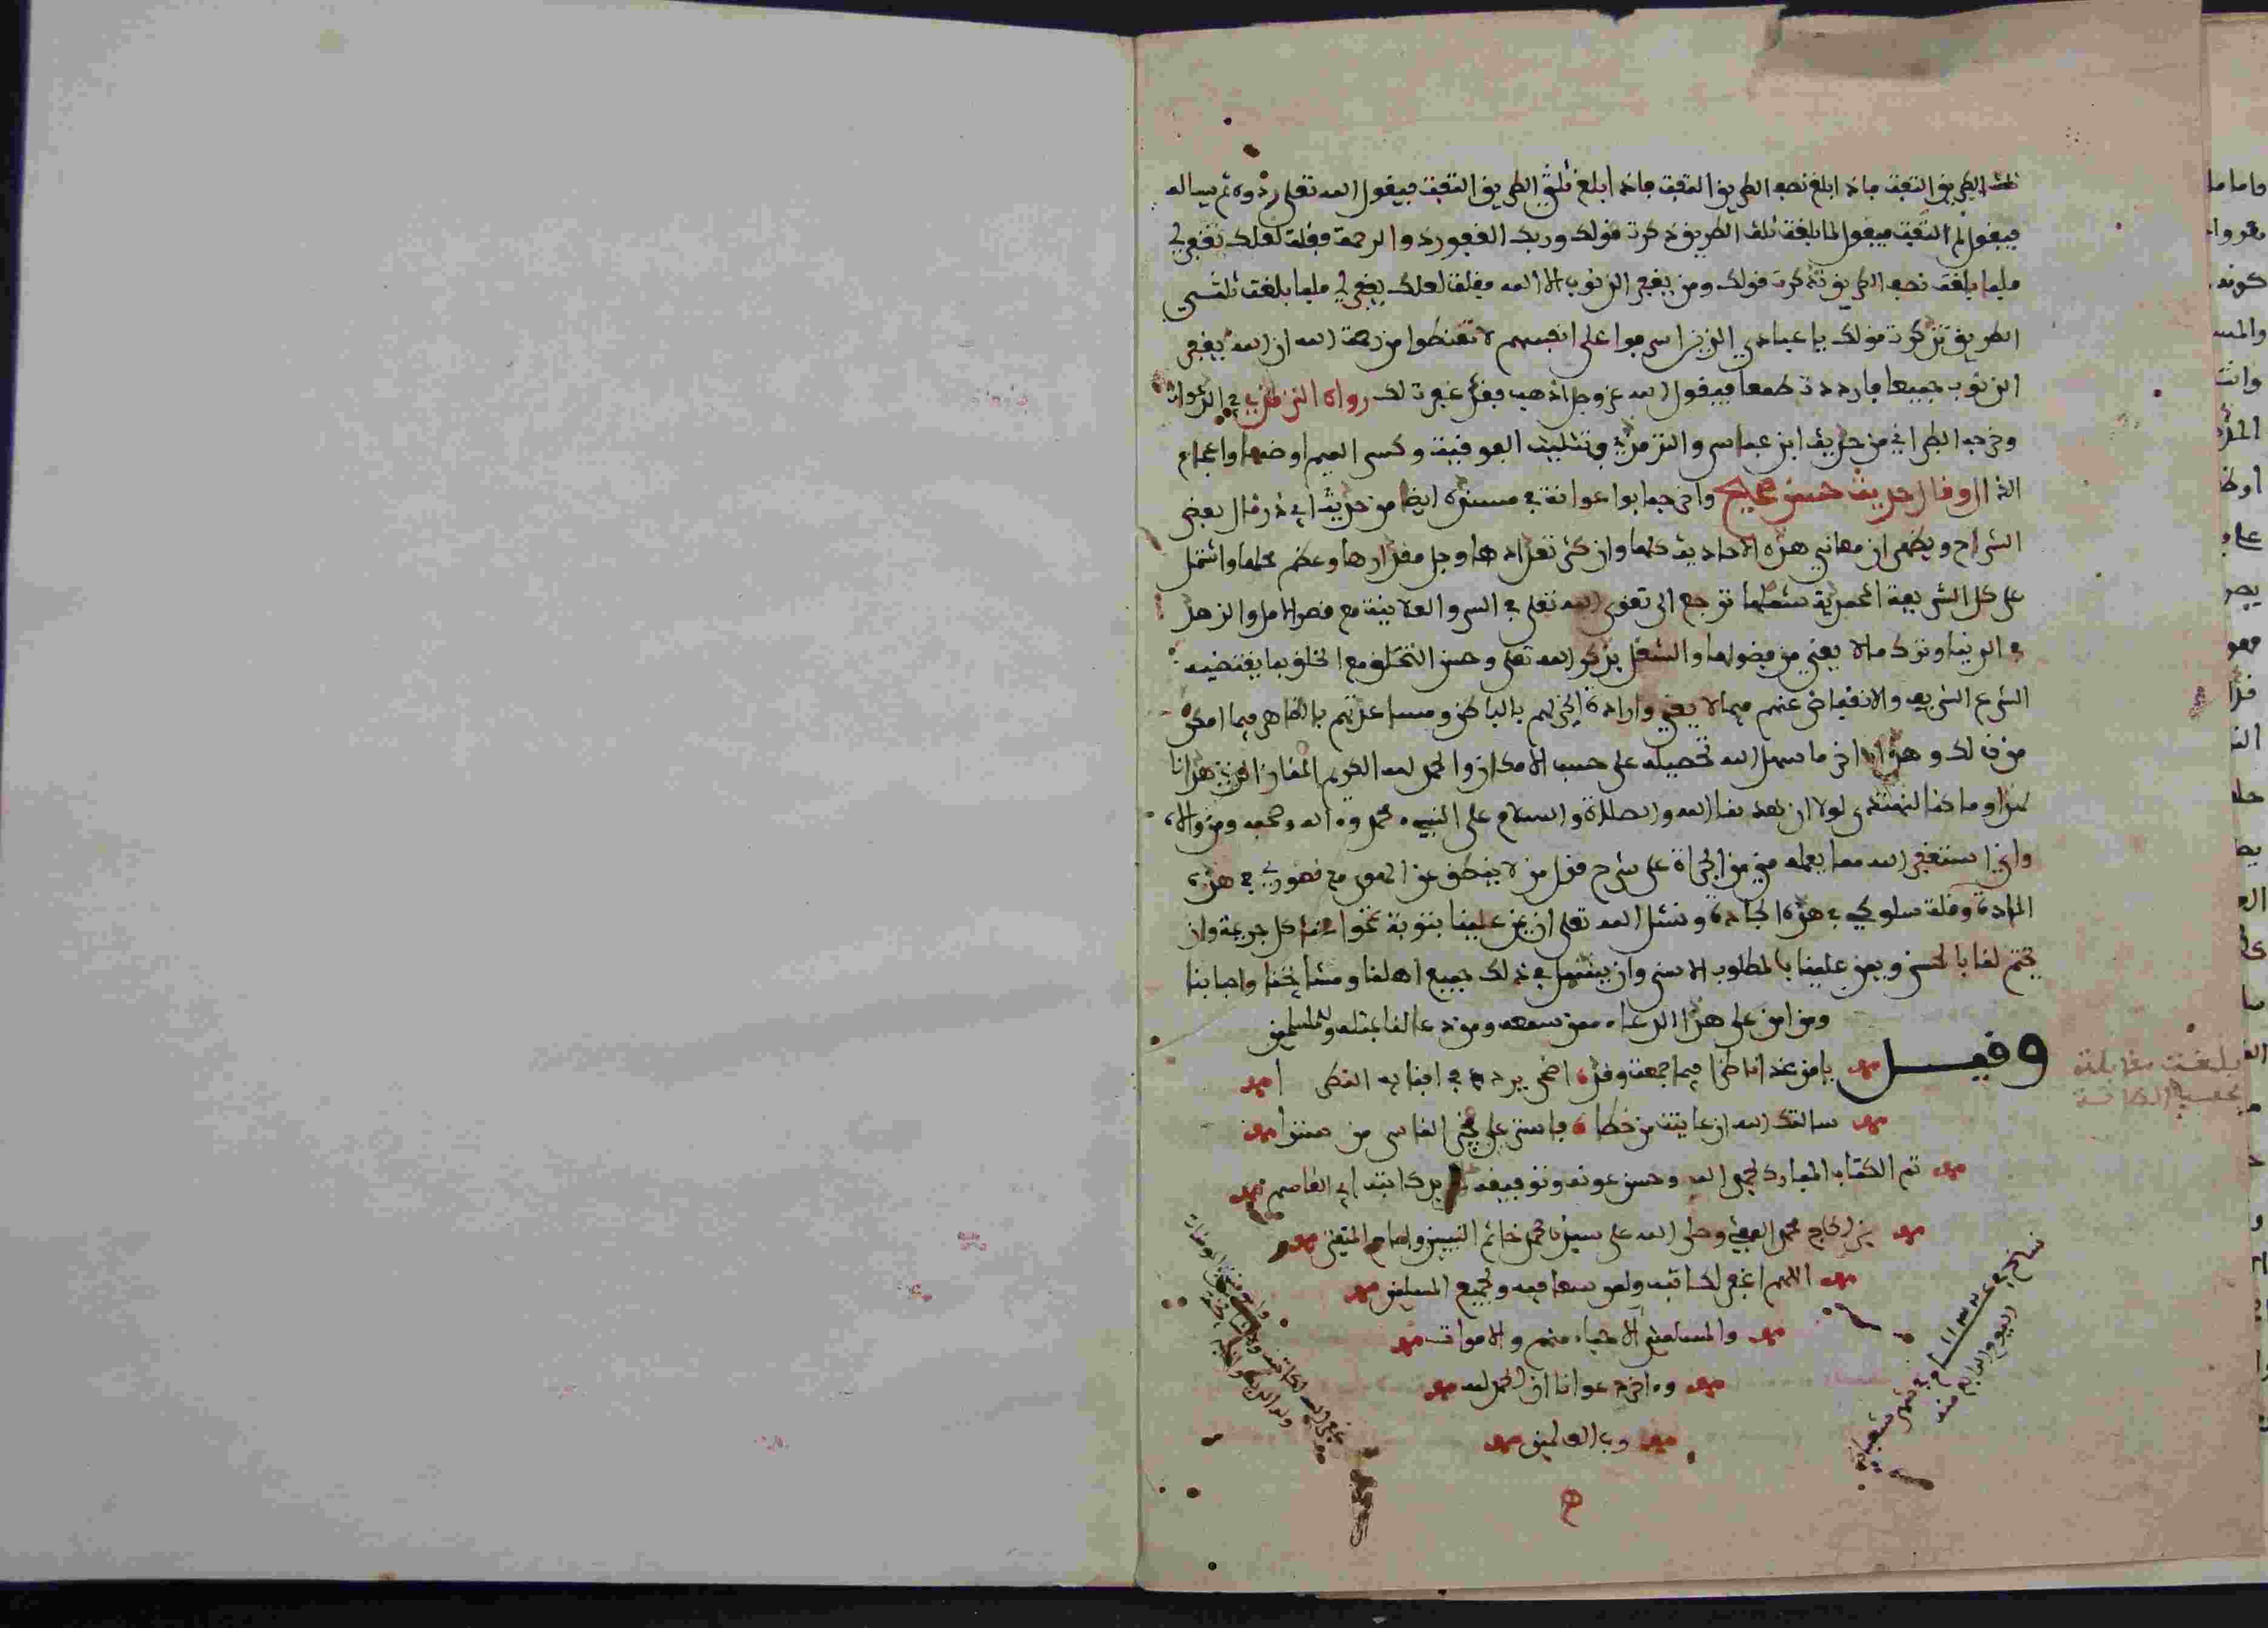 ثلث الطريق التفت فاذا ابلغ نصف الطريق التفت فاذا ابلغ ثلثي الطريق التفت فيقول الله تعلى ردوه ثم يساله
فيقول لم التفت فيقول لما بلغت ثلث الطريق ذكرت قولك وربك الغفور ذو الرحمة فقلت لعلك تغفر لي
فلما بلغت نصف الطريق تذكرت قولك ومن يغفر الذنوب الا الله فقلت لعلك تغفر لي فلما بلغت ثلثي
الطريق تذكرت قولك يا عبادي الذين اسرفوا على انفسهم لا تقنطوا من رحمة الله ان الله يغفر
الذنوب جميعا فازددت طمعا فيقول الله عز وجل اذهب فقد غفرت لك رواه الترمذي في الدعوات
وخرجه الطبراني من حديث ابن عباس والترمذي بتثليث الفوقية وكسر الميم او ضمها واعجام
الذال وقال حديث حسن صحيح واخرجه ابوا عوانة في مسنده ايضا من حديث ابي ذر قال بعض
الشراح ويظهر ان معاني هذه الاحاديث كلها وان كثر تعدادها وجل مقدارها وعظم محلها واشتمل
على كل الشريعة المحمدية شملها ترجع الى تقوى الله تعلى في السر والعلانية مع قصر الامل والزهد
في الدنيا وترك ما لا يعني من فضولها والشغل بذكر الله تعلى وحسن التخلق مع الخلق بما يقتضيه
الشرع الشريف والانقباض عنهم فيما لا يعني وارادة الخير لهم بالباطن ومساعدتهم بالظاهر فيما امكن
من ذلك وهذا اخر ما سهل الله تحصيله على حسب الامكان والحمد لله الكريم المنان الذي هدانا
لهذا وما كنا لنهتدي لولا ان هدانا الله والصلاة والسلام على النبي محمد وءاله وصحبه ومن والاه
واني استغفر الله مما يعلمه مني من الجراة على شرح قول من لا ينطق عن الهوى مع قصوري في هذه
المادة وقلة سلوكي في هذه الجادة ونسئل الله تعلى ان يمن علينا بتوبة تمحوا عنا كل جريمة وان
يختم لنا بالحسنى ويمن علينا بالمطلوب الاسنى وان يشمل في ذلك جميع اهلنا ومشايخنا واحبابنا
ومن امن على هذا الدعاء ممن سمعه ومن دعا لنا بمثله وللمسلمين
وقيل يا من غدا ناظرا فيما جمعت وقد اضحى يردد في افنايه النظرا
سالتك الله ان عاينت من خطا فاستر علي فخير الناس من سترا
تم الكتاب المبارك بحمد الله وحسن عونه وتوفيقه يد كاتبه ابي القاسم
بن الحاج محمد وصلى الله على سيدنا محمد خاتم النبيين وامام المتقين
اللهم اغفر لكاتبه ولمن سعا فيه ولجميع المسلمين
والمسلمين الاحياء منهم والاموات
وءاخر دعوانا ان الحمد لله
رب العالمين
بلغت مقابلة
بحسب الطاقة